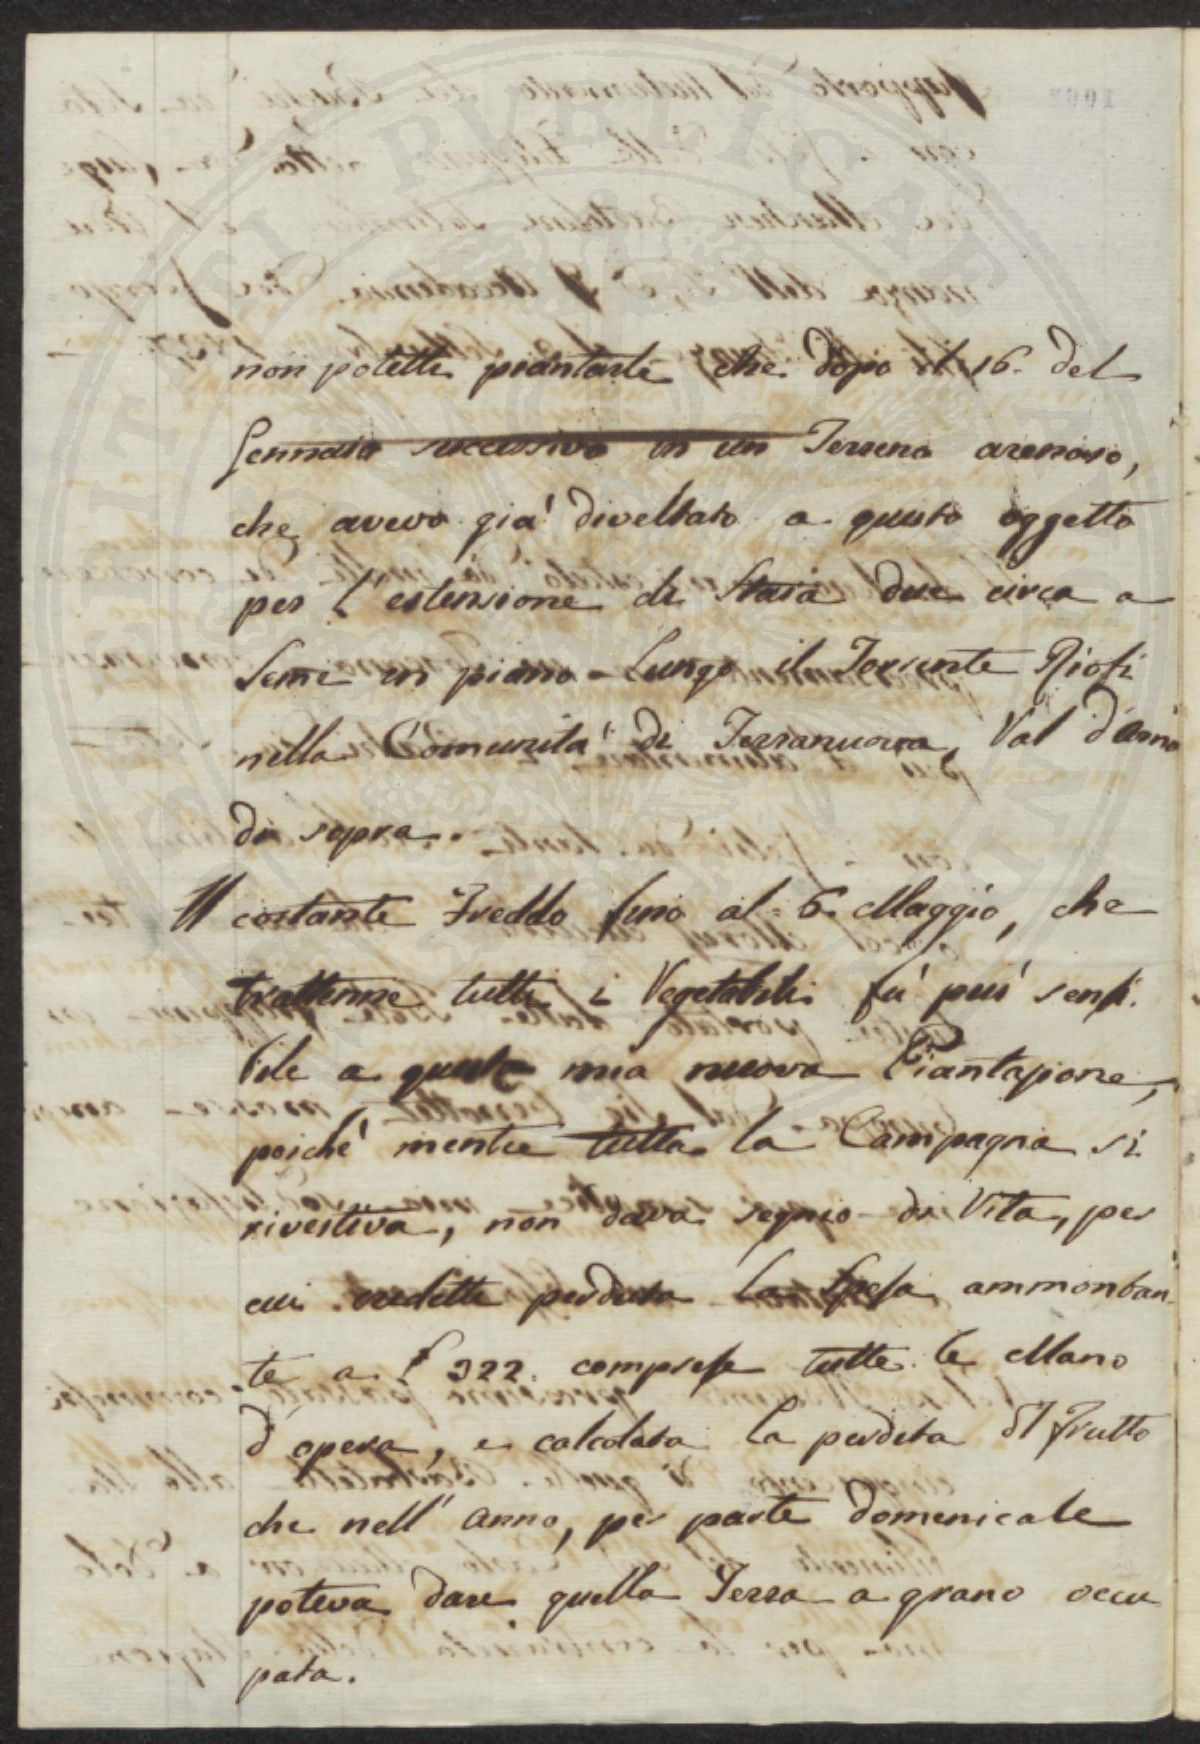 non potetti piantarle che dopo il 16. del
Gennaio successivo in un Terreno arenoso,
che avevo già diveltato a questo oggetto
per l'estensione di Staia due circa a
Seme in piano Lungo il Torrente Riofi
nella Comunità di Terranuova, Val d'arno
di sopra.
Il costante Freddo fino al 6. Maggio, che
trattenne tutti i Vegetabili fù più sensi-
bile a questa mia nuova Piantazione,
poichè mentre tutta la Campagna si
rivestiva, non dava segno di Vita, per
cui credetti perduta la Spesa ammontan-
te a £ 322. comprese tutte le Mano
d'opera, e calcolata la perdita dl frutto
che nell'anno, per parte domenicale
poteva dare quella Terra a grano occu
pata.